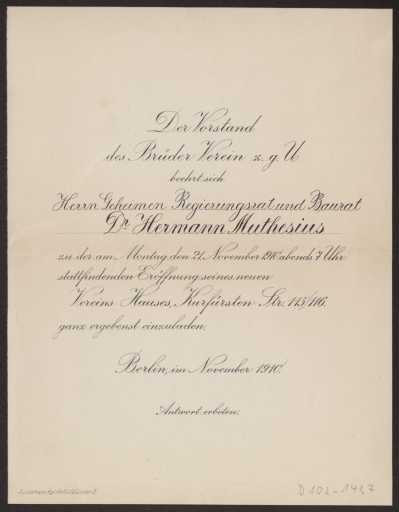 Der Vorstand
des Brüder Verein z. g. U
beehrt sich
Herrn Geheimen Regierungsrat und Baurat
Dr. Hermann Muthesius
zu der am Montag den 21. November 1910 abends 7 Uhr
stattfindenden Eröffnung seines neuen
Vereins Hauses, Kurfürsten Str. 115/116,
ganz ergebenst einzuladen.
Berlin, im November 1910.
Antwort erbeten.
D 102-1427